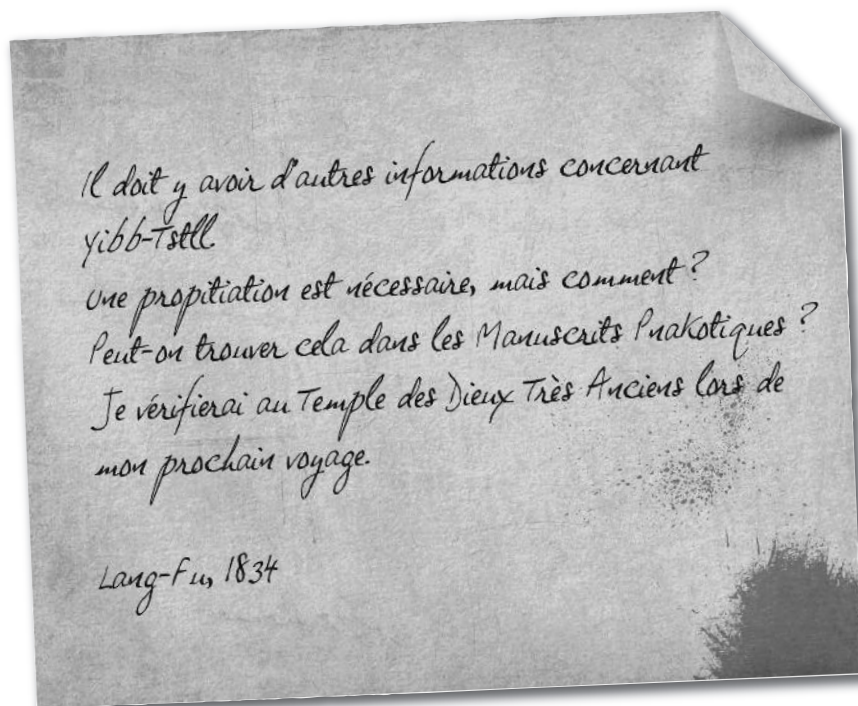 Il doit y avoir d'autres informations concernant
Yibb-Tstll.
Une propitiation est nécessaire, mais comment ?
Peut-on trouver cela dans les Manuscrits Pnakotiques ?
Je vérifierai au Temple des Dieux Très Anciens lors de
mon prochain voyage.
Lang-Fu, 1834